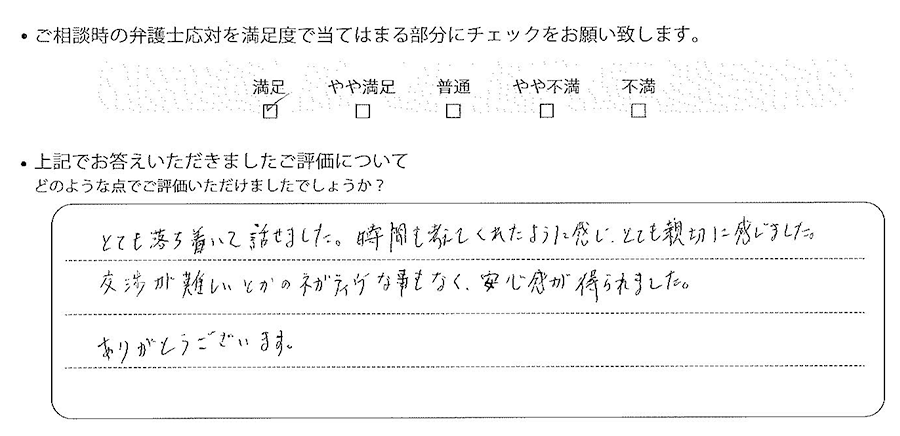 • ご相談時の弁護士応対を満足度で当てはまる部分にチェックをお願い致します。
満足 やや満足 普通 やや不満 不満
☑ ☐ ☐ ☐ ☐
• 上記でお答えいただきましたご評価について
どのような点でご評価いただけましたでしょうか？
とても落ち着いて話せました。時間も考えてくれたように感じ、とても親切に感じました。
交渉が難しいとかのネガティヴな事もなく、安心感が得られました。
ありがとうございます。